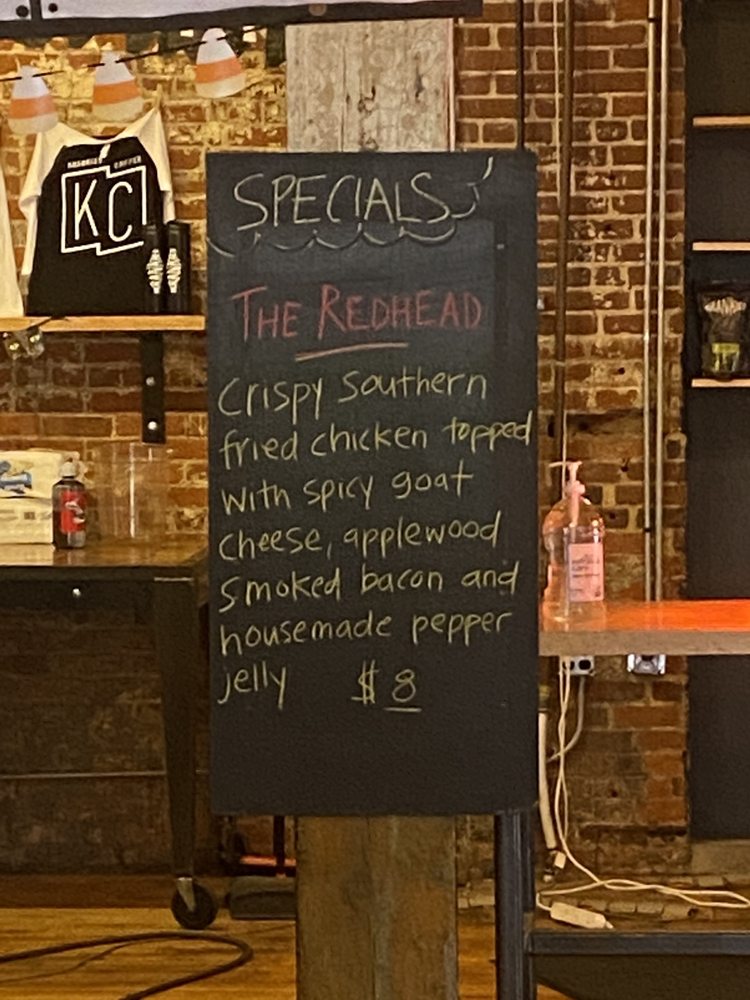 KC
SPECIALS
THE REDHEAD
Crispy Southern
fried chicken topped
with spicy goat
cheese, applewood
smoked bacon and
housemade pepper
jelly $8